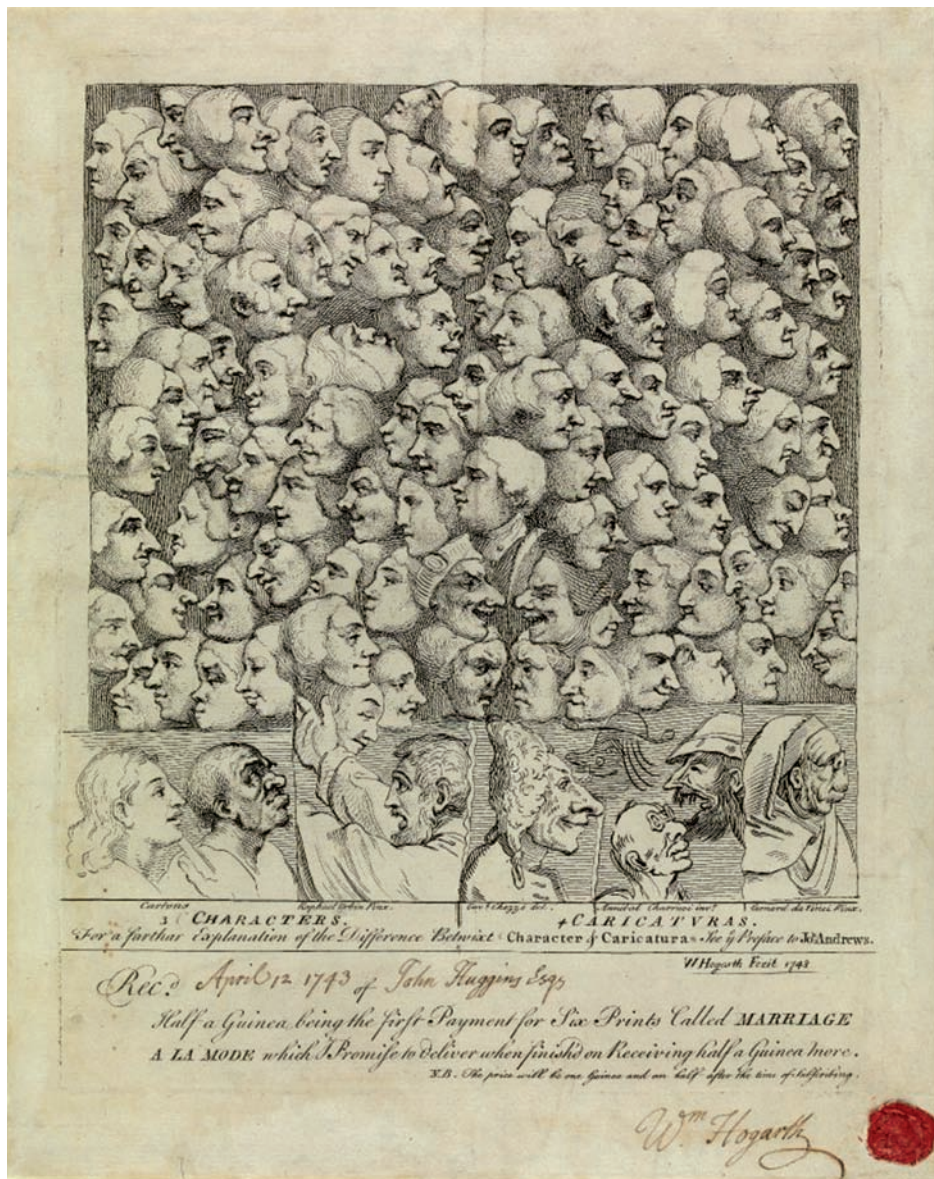 Cartons Raphael Urbin Pinx. Cav.r Ghezzi del. Annibal Charracci inv.t Leonard da Vinci Pinx.
3 CHARACTERS. 4 CARICATVRAS.
For a farthar Explanation of the Difference Betwixt Character & Caricatura See ye Preface to Jo.h Andrews.
W Hogarth Fecit 1743
Rec.d April 12 1743 of John Huggins Esqr
Half a Guinea being the first Payment for Six Prints Called MARRIAGE
A LA MODE which I Promise to deliver when finish'd on Receiving half a Guinea more.
N.B. The price will be one Guinea and an half after the time of Subscribing.
Wm Hogarth